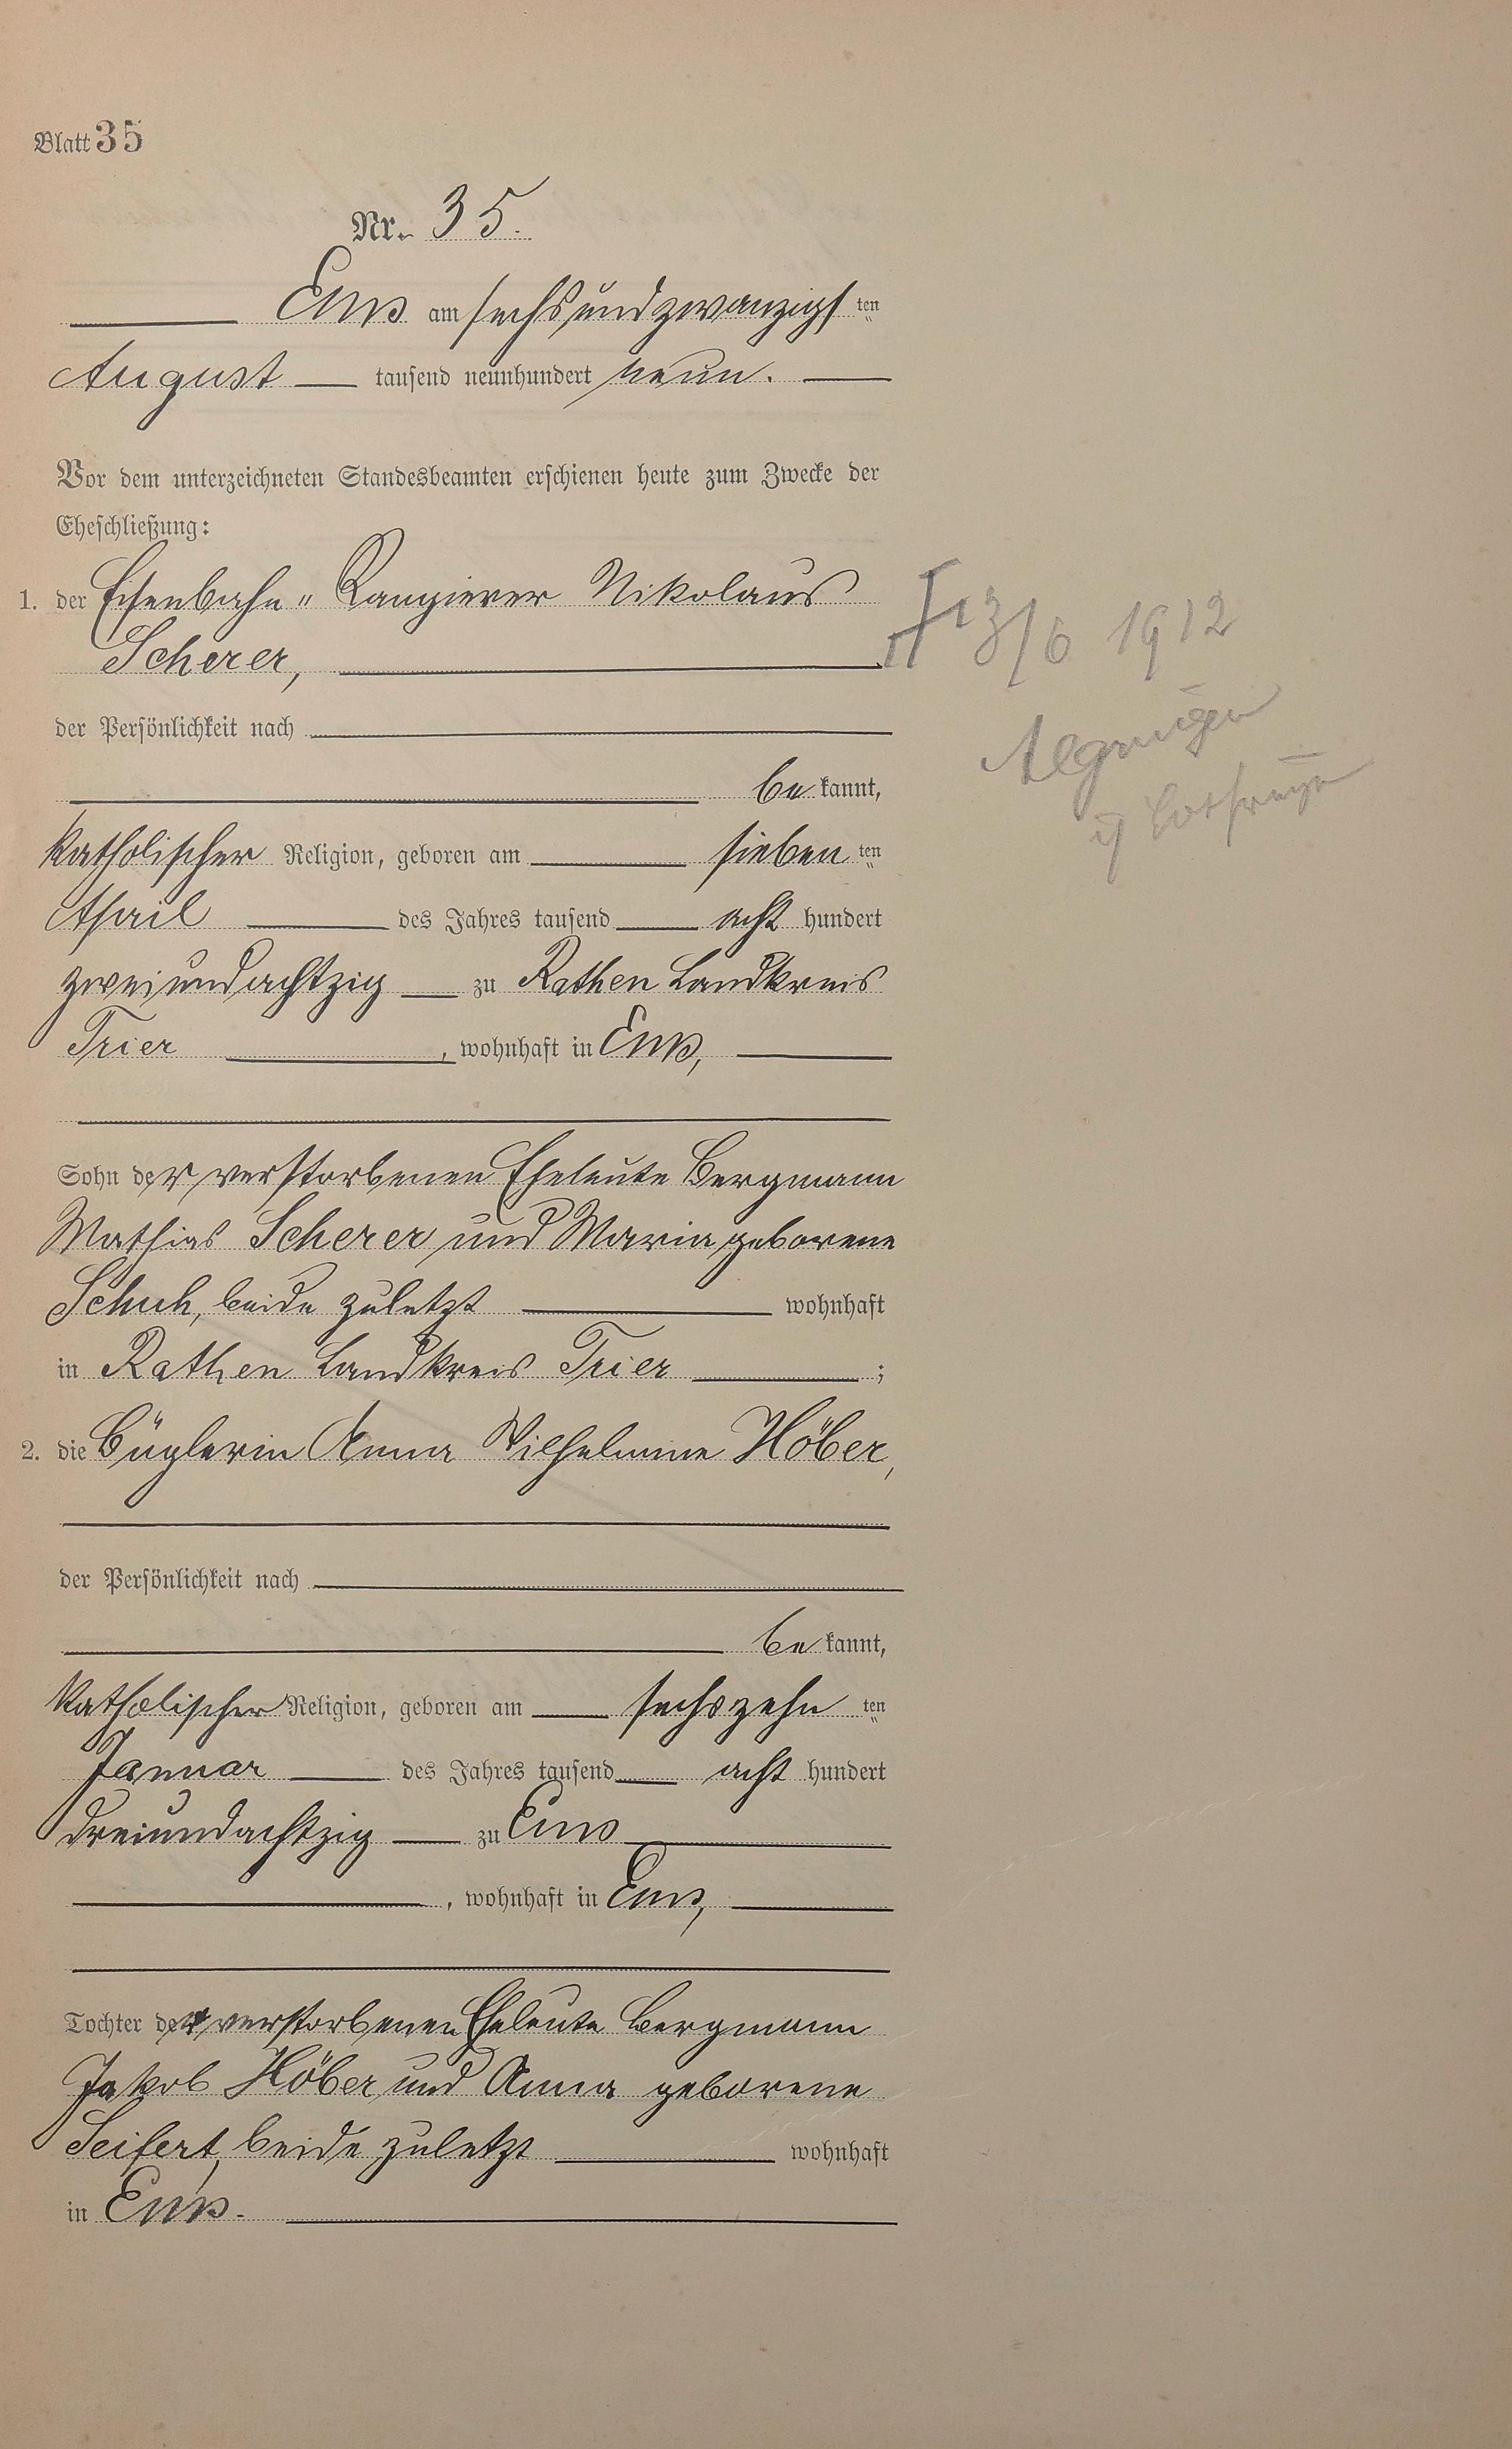 Blatt 35
Nr. 35.
Ems am sechsundzwanzigsten
August tausend neunhundert neun.
Vor dem unterzeichneten Standesbeamten erschienen heute zum Zwecke der
Eheschließung:
1. der Eisenbahn-Rangierer Nikolaus
Scherer,
der Persönlichkeit nach
bekannt,
katholischer Religion, geboren am siebenten
April des Jahres tausend acht hundert
zweiundachtzig zu Rathen Landkreis
Trier, wohnhaft in Ems,
Sohn der verstorbenen Eheleute Bergmann
Mathias Scherer und Maria geborene
Schuh, beide zuletzt wohnhaft
in Rathen Landkreis Trier;
2. die Büglerin Anna Wilhelmine Höber,
der Persönlichkeit nach
bekannt,
katholischer Religion, geboren am sechszehnten
Januar des Jahres tausend acht hundert
dreiundachtzig zu Ems
, wohnhaft in Ems,
Tochter der verstorbenen Eheleute Bergmann
Jakob Höber und Anna geborene
Seifert, beide zuletzt wohnhaft
in Ems.
3/6 1912
Algringen